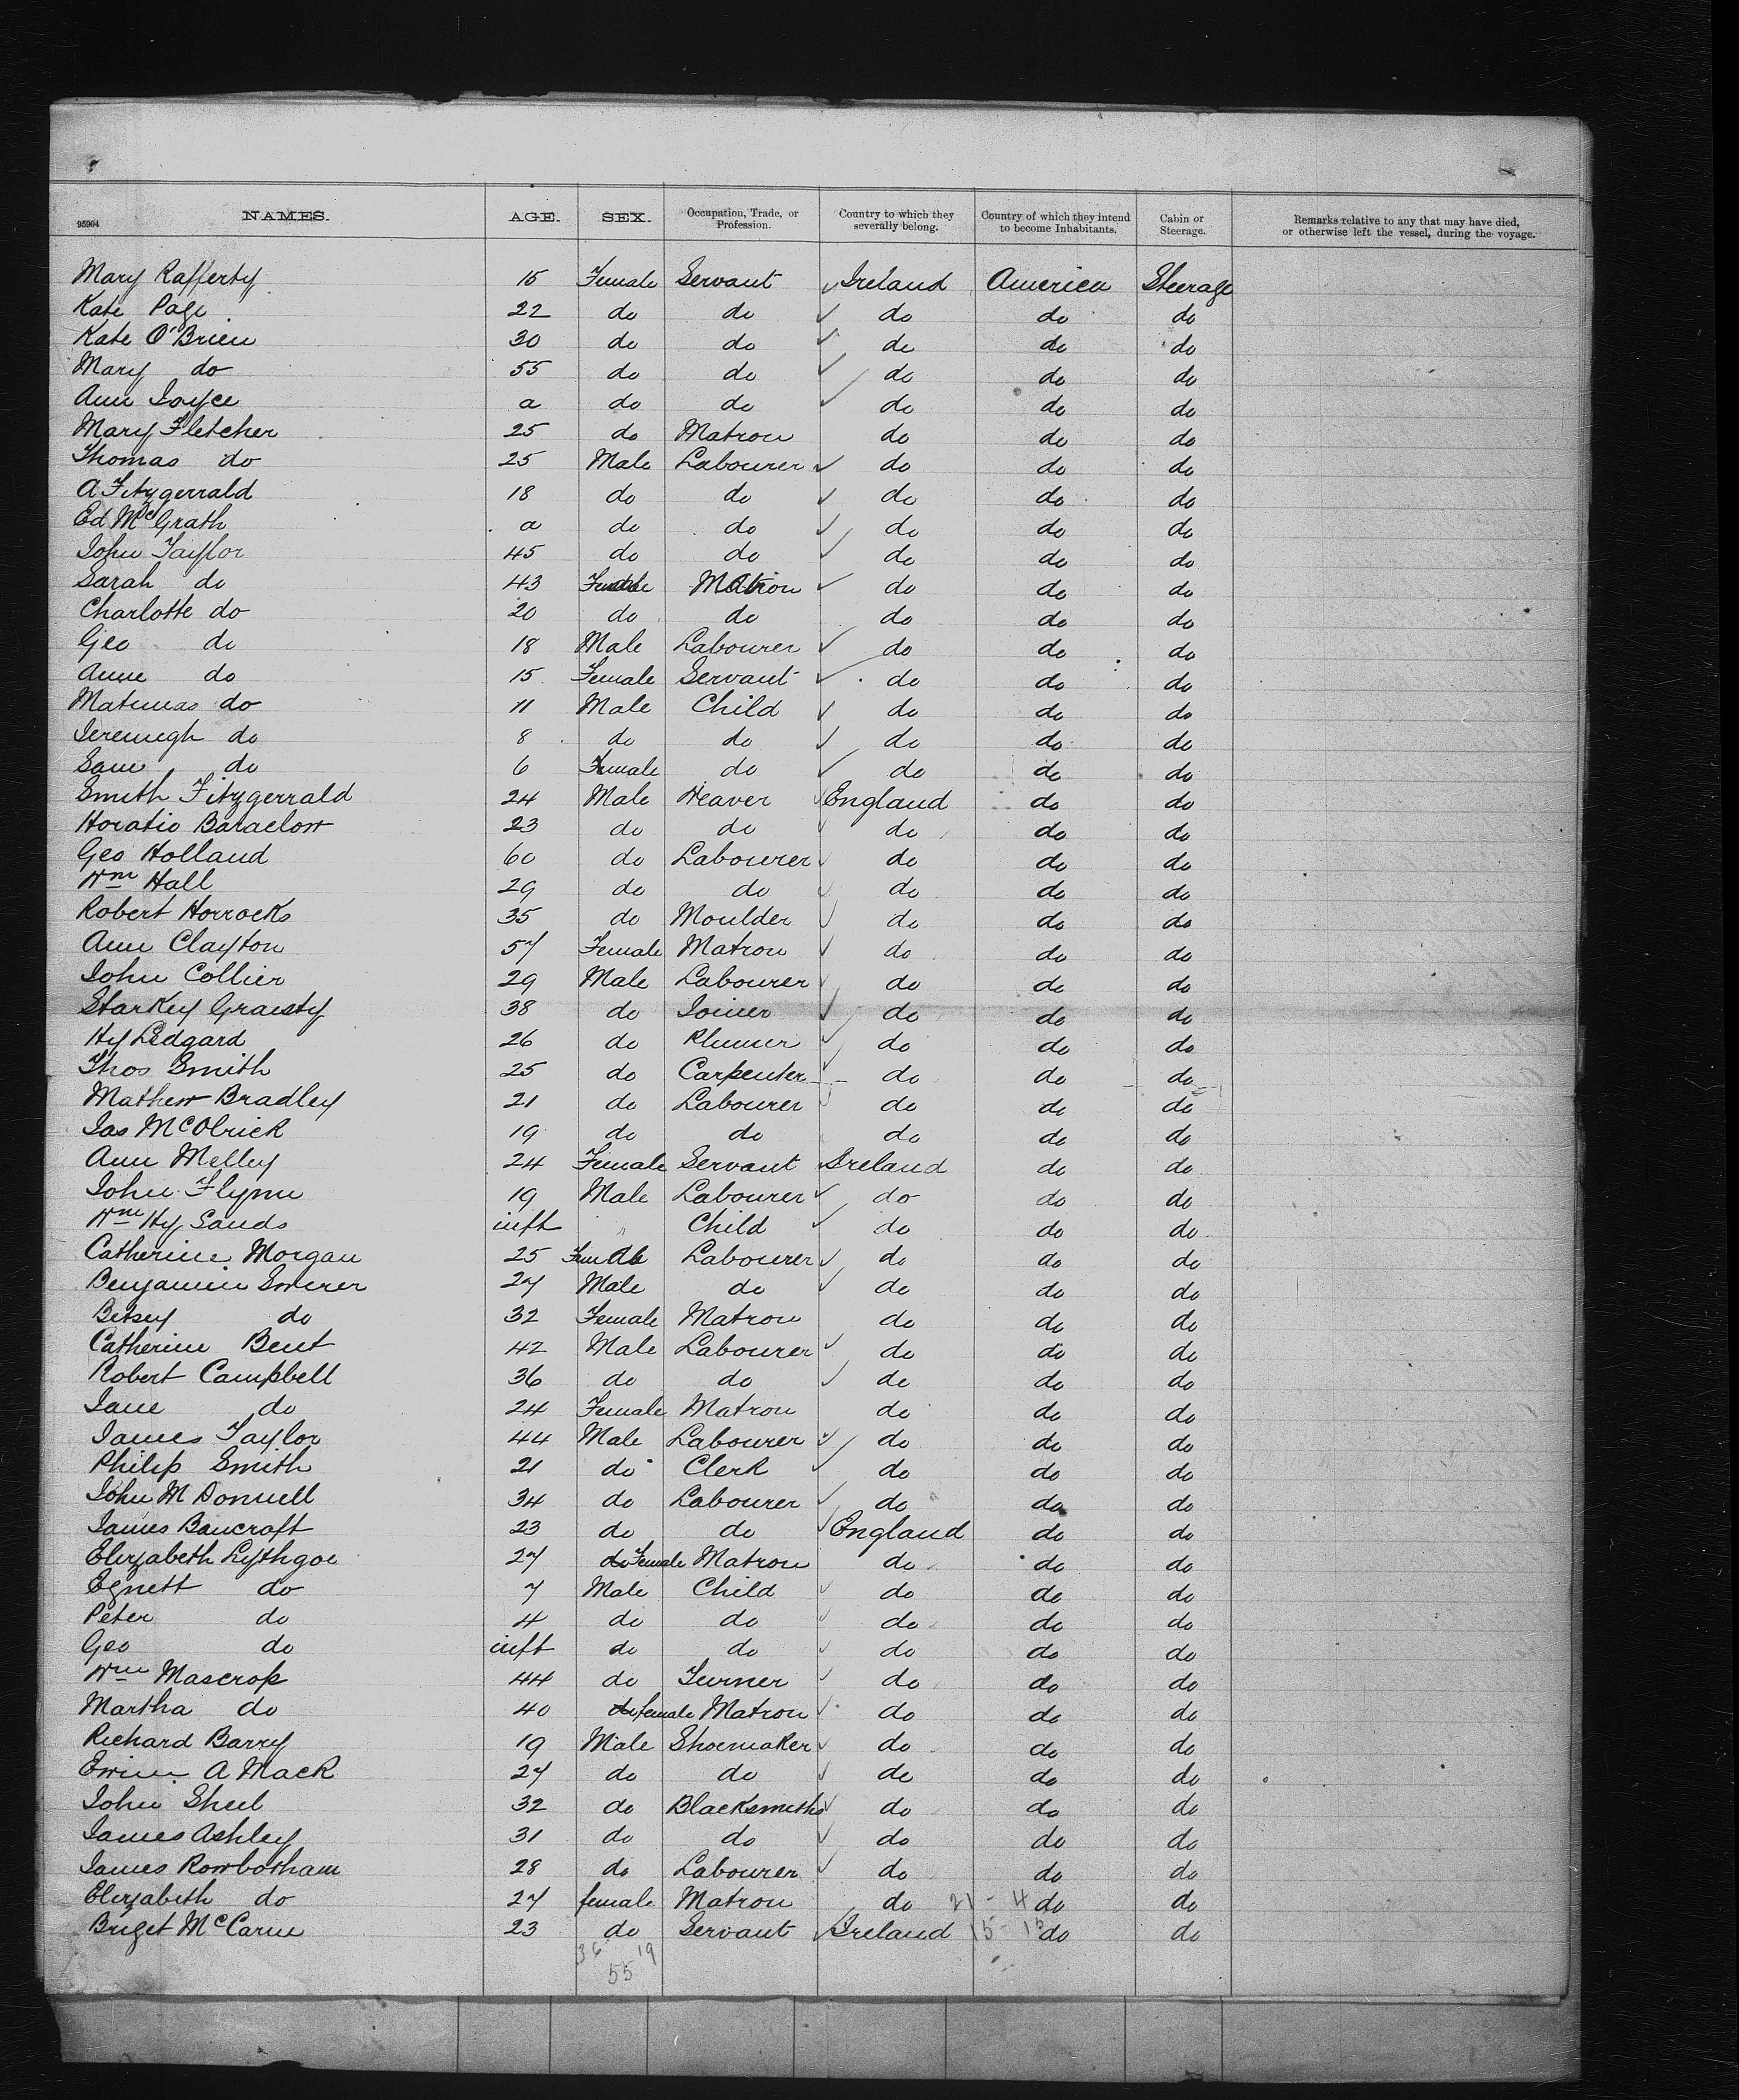 95904 NAMES. AGE. SEX. Occupation, Trade, or Profession. Country to which they severally belong. Country of which they intend to become Inhabitants. Cabin or Steerage. Remarks relative to any that may have died, or otherwise left the vessel, during the voyage.
Mary Rafferty 15 Female Servant Ireland America Steerage
Kate Page 22 do do do do do
Kate O'Brien 30 do do do do do
Mary do 55 do do do do do
Ann Joyce a do do do do do
Mary Fletcher 25 do Matron do do do
Thomas do 25 Male Labourer do do do
A Fitzgerrald 18 do do do do do
Ed McGrath a do do do do do
John Taylor 45 do do do do do
Sarah do 43 Female Matron do do do
Charlotte do 20 do do do do do
Geo do 18 Male Labourer do do do
Anne do 15 Female Servant do do do
do 11 Male Child do do do
do 8 do do do do do
Sam do 6 Female do do do do
Smith Fitzgerrald 24 Male Weaver England do do
Horatio 23 do do do do do
Geo Holland 60 do Labourer do do do
Wm Hall 29 do do do do do
Robert Horrocks 35 do Moulder do do do
Ann Clayton 57 Female Matron do do do
John Collier 29 Male Labourer do do do
Starkey 38 do Joiner do do do
Hy Ledgard 26 do do do do
Thos Smith 25 do Carpenter do do do
Mathew Bradley 21 do Labourer do do do
Jas 19 do do do do do
Ann Melley 24 Female Servant Ireland do do
John Flynn 19 Male Labourer do do do
Wm Hy Sands inft " Child do do do
Catherine Morgan 25 Female Labourer do do do
Benjamin 27 Male do do do do
Betsey do 32 Female Matron do do do
Catherine Bent 42 Male Labourer do do do
Robert Campbell 36 do do do do do
Jane do 24 Female Matron do do do
James Taylor 44 Male Labourer do do do
Philip Smith 21 do Clerk do do do
John M Donnell 34 do Labourer do do do
James Bancroft 23 do do England do do
Elizabeth Lythgoe 27 do Female Matron do do do
Egnett do 7 Male Child do do do
Peter do 4 do do do do do
Geo do inft do do do do do
Wm Mascrop 44 do Turner do do do
Martha do 40 do female Matron do do do
Richard Barry 19 Male Shoemaker do do do
A Mack 27 do do do do do
John Sheel 32 do Blacksmiths do do do
James Ashley 31 do do do do do
James Rowbotham 28 do Labourer do do do
Elizabeth do 27 female Matron do 21 - 4 do do
Briget McCarne 23 do Servant Ireland 15 - 15 do do
36 19
55